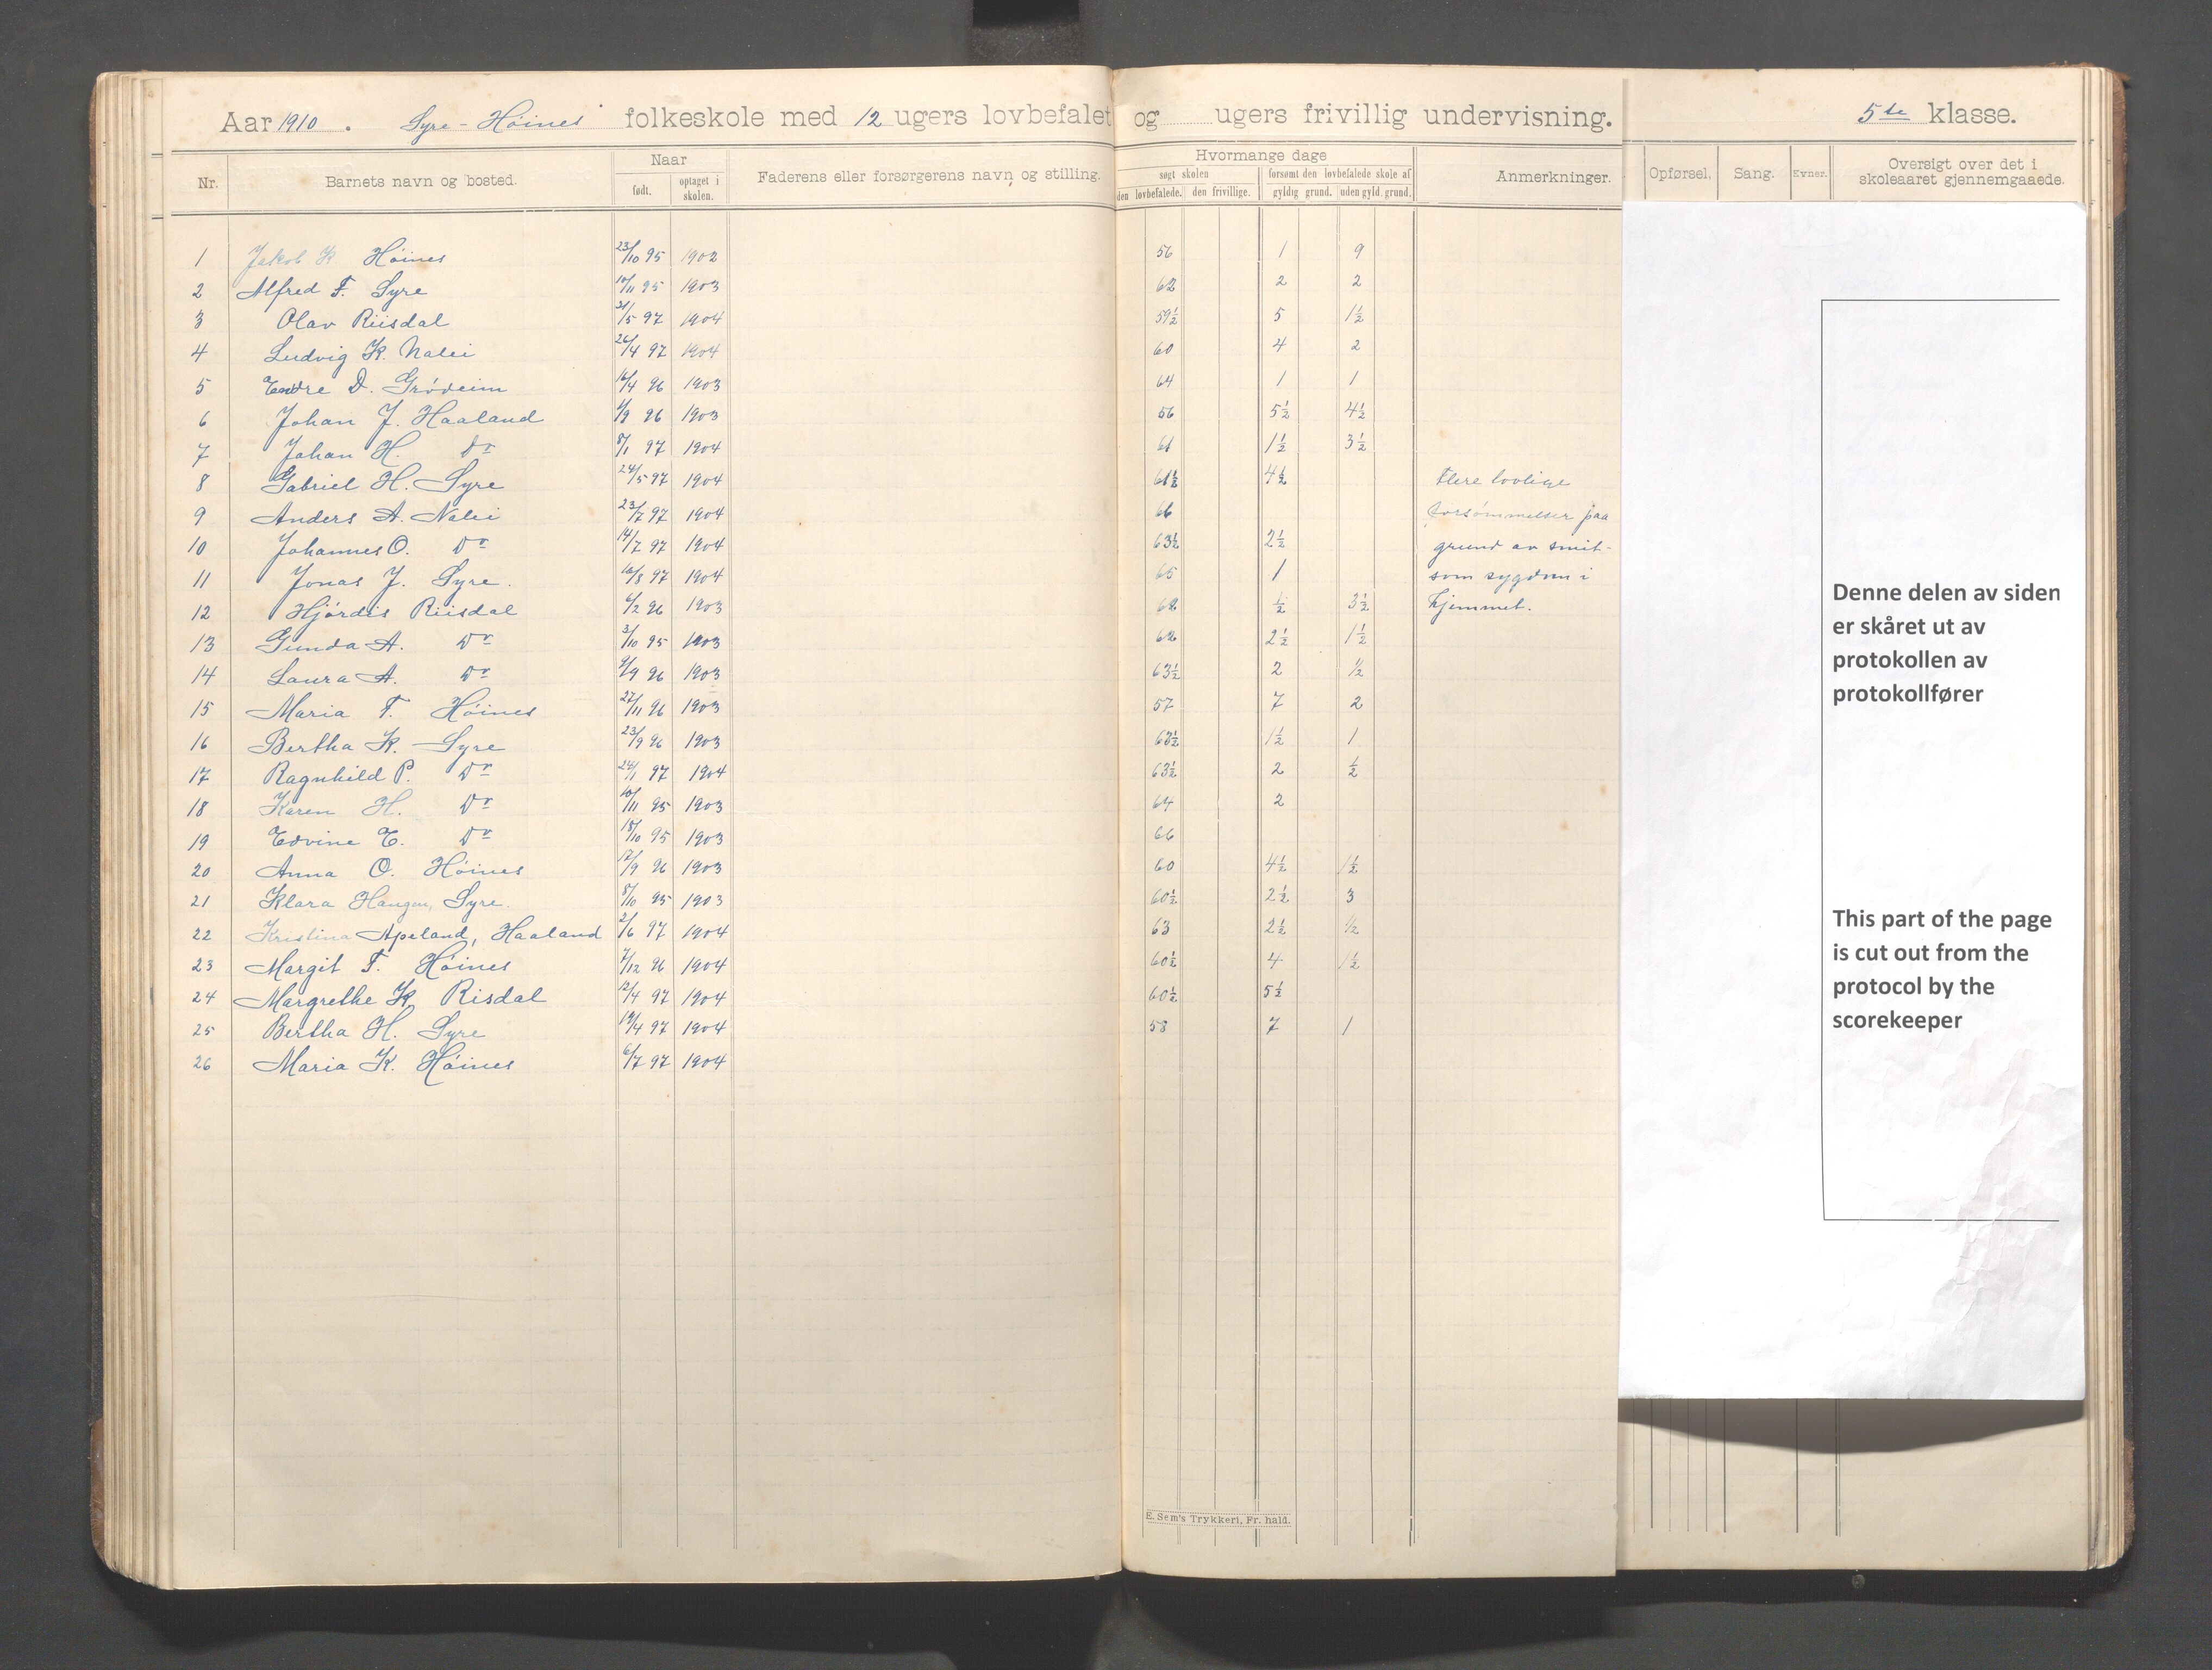 Aar 1910. Syre-Höines folkeskole med 12 ugers lovbefalet og ugers frivillig undervisning. 5te klasse.
Nr. Barnets navn og bosted. Naar født. optaget i skolen. Faderens eller forsørgerens navn og stilling. Hvormange dage søgt skolen den lovbefalede. den frivillige. forsømt den lovbefalede skole af gyldig grund. uden gyld. grund. Anmerkninger. Opførsel. Sang. Evner. Oversigt over det i skoleaaret gjennemgaaede.
1 Jakob K. Höines 23/10 95 1902 56 1 9
2 Alfred F. Syre 95 1903 62 2 2
3 Olav Riisdal 97 1904 59½ 5 1½
4 Ludvig K. Nalei 26/4 97 1904 60 4 2
5 Endre D. Grödeim 16/4 96 1903 64 1 1
6 Johan J. Haaland 96 1903 56 5½ 4½
7 Johan H. Do 8/1 97 1904 61 1½ 3½
8 Gabriel H. Syre 24/5 97 1904 61½ 4½ Flere lovlige
9 Anders A. Nalei 23/7 97 1904 66 forsømmelser paa
10 Johannes O. Do 14/7 97 1904 63½ 2½ grund av smit-
11 Jonas J. Syre. 16/8 97 1904 65 1 som sygdom i
12 Hjördis Riisdal 6/2 96 1903 62 ½ 3½ hjemmet.
13 Gunda A. Do 3/10 95 1903 62 2½ 1½
14 Laura A. Do 9/9 96 1903 63½ 2 ½
15 Maria F. Höines 27/11 96 1903 57 7 2
16 Bertha K. Syre 23/9 96 1903 63½ 1½ 1
17 Ragnhild P. Do 97 1904 63½ 2 ½
18 Karen H. Do 10/11 95 1903 64 2
19 Edvine E. Do 18/10 95 1903 66
20 Anna O. Höines 12/9 96 1903 60 4½ 1½
21 Klara Haugen, Syre. 8/10 95 1903 60½ 2½ 3
22 Kristina Apeland, Haaland 2/6 97 1904 63 2½ ½
23 Margit F. Höines 7/12 96 1904 60½ 4 1½
24 Margrethe K. Risdal 12/4 97 1904 60½ 5½
25 Bertha H. Syre 19/4 97 1904 58 7 1
26 Maria K. Höines 6/7 97 1904
E. Sem's Trykkeri, Fr. hald.
Denne delen av siden
er skåret ut av
protokollen av
protokollfører
This part of the page
is cut out from the
protocol by the
scorekeeper